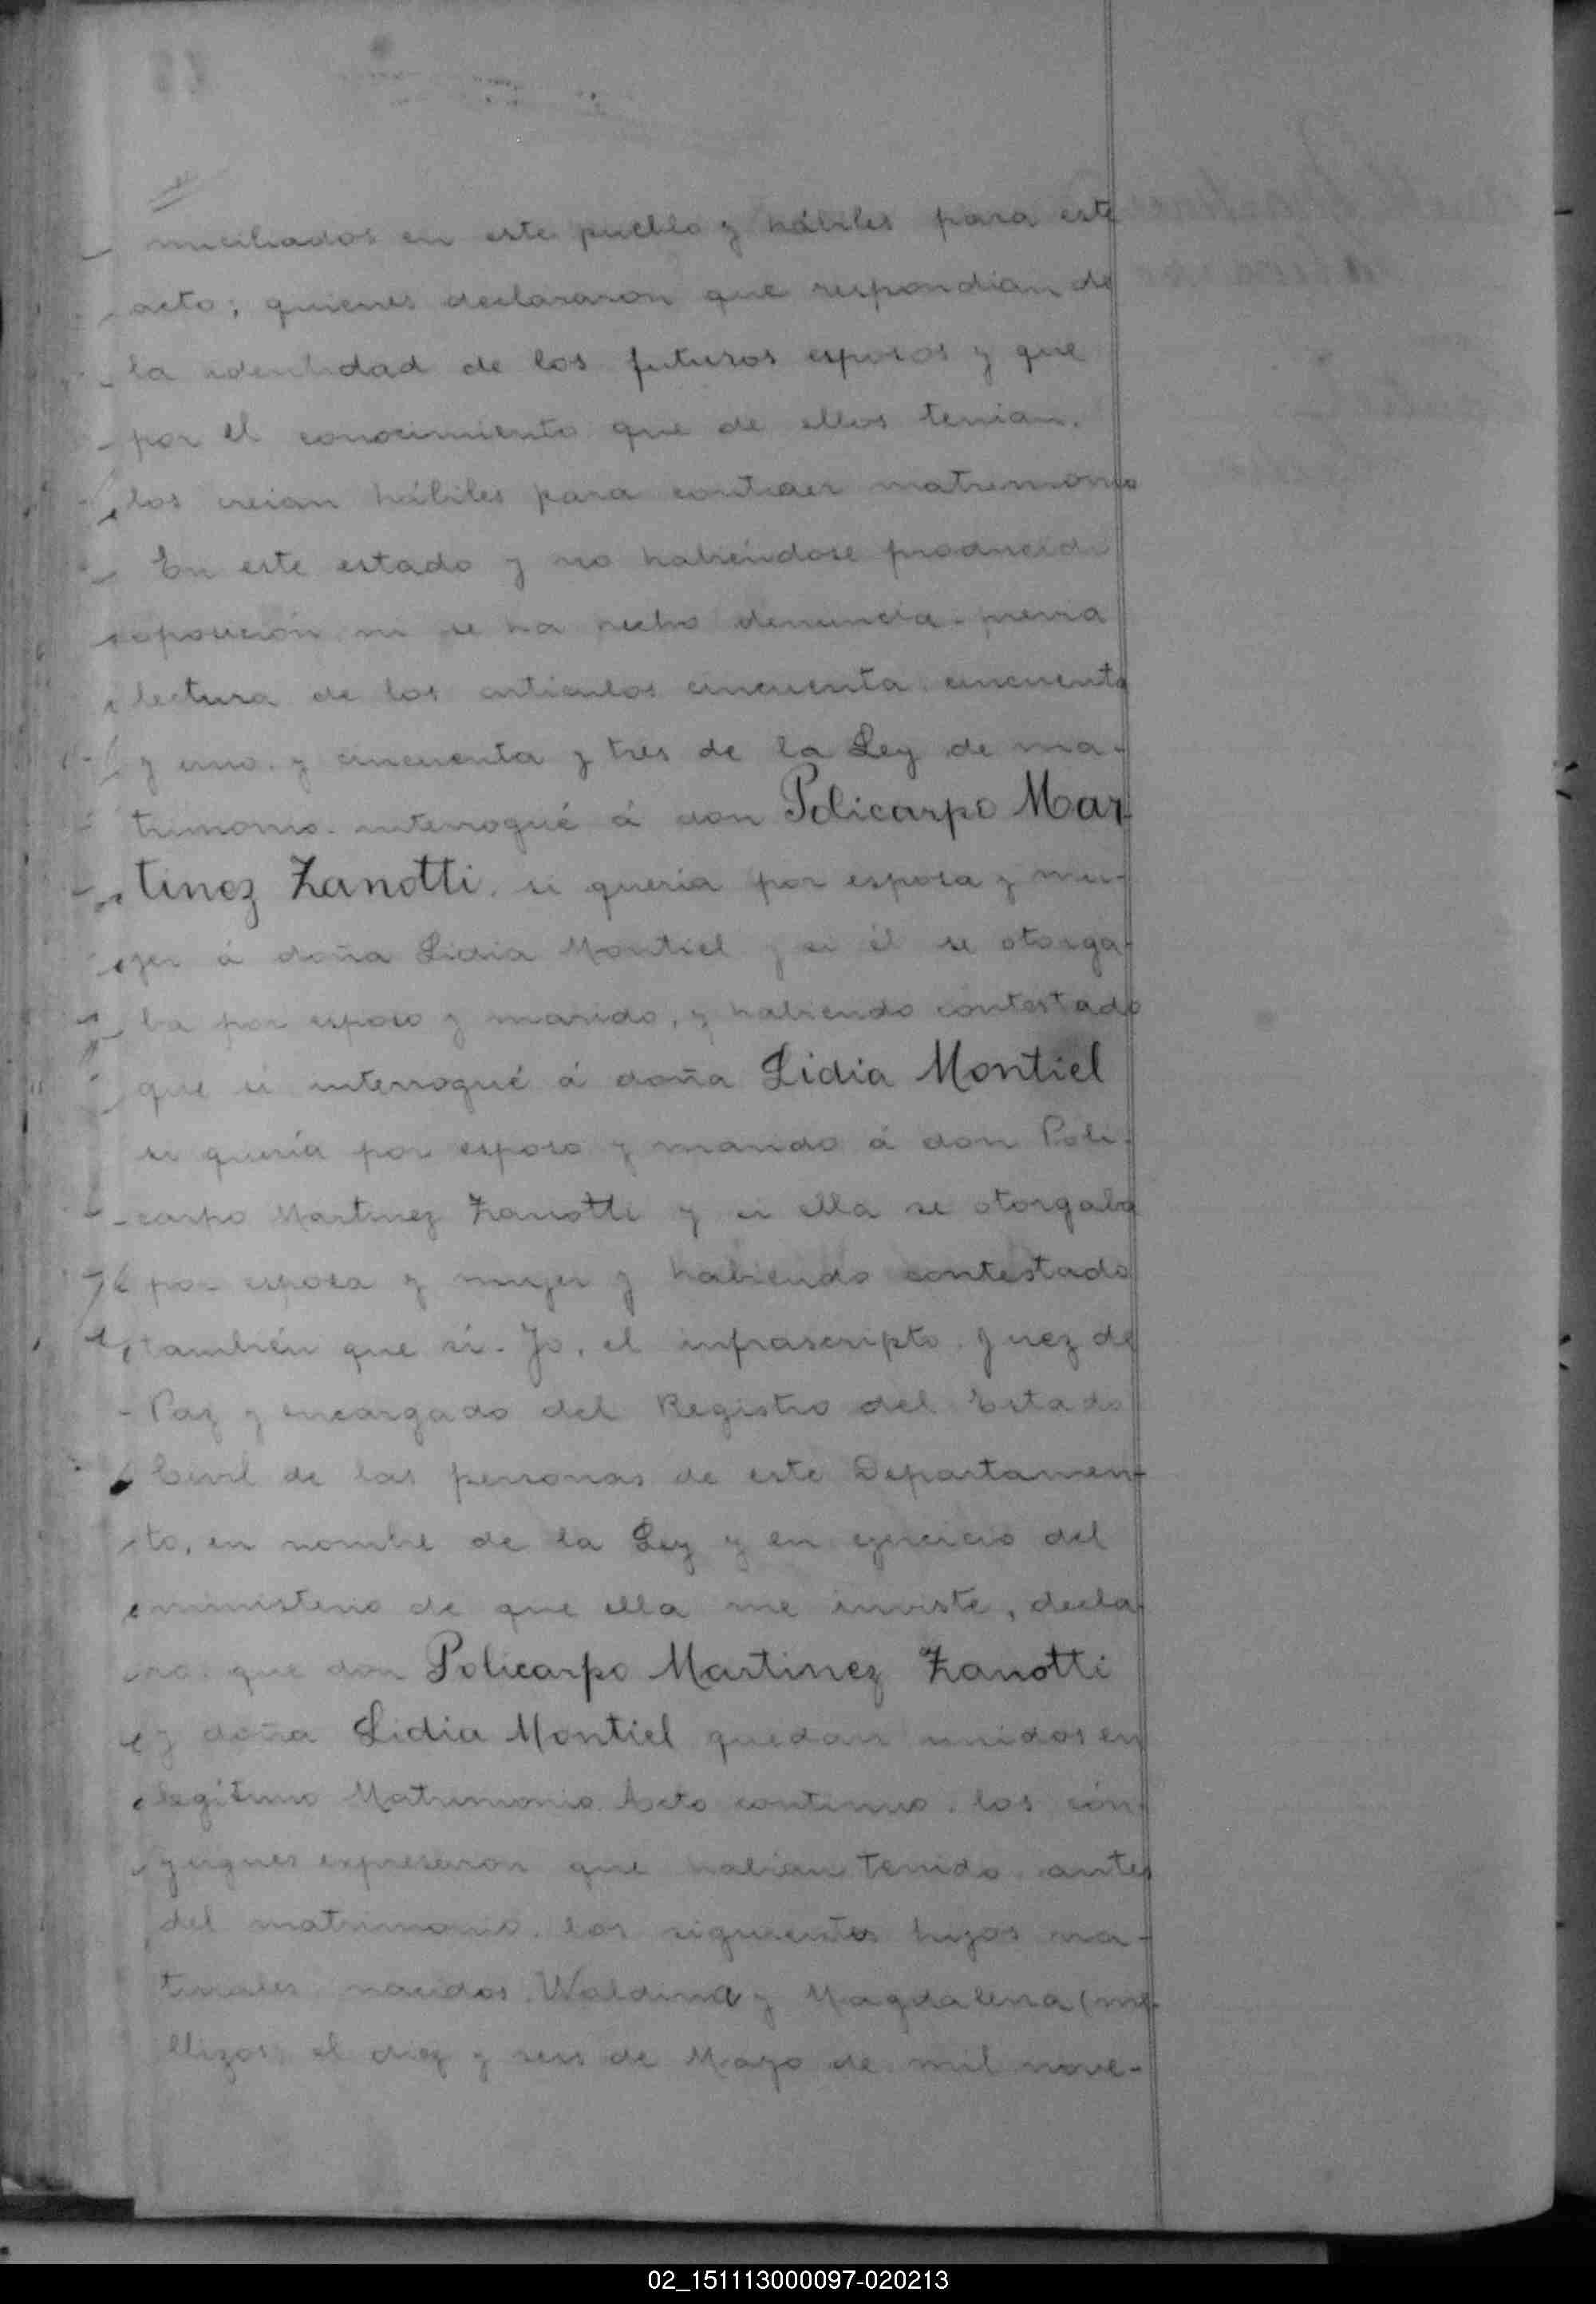 miciliados en este pueblo y hábiles para este
acto; quienes declararon que respondian de
la identidad de los futuros esposos y que
por el conocimiento que de ellos tenian,
los creian hábiles para contraer matrimonio
En este estado y no habiéndose producido
oposicion ni se ha hecho denuncia, previa
lectura de los articulos cincuenta, cincuenta
y uno y cincuenta y tres de la Ley de ma-
trimonio interrogué á don Policarpo Mar
tinez Zanotti, si queria por esposa y mu-
jer á doña Lidia Montiel y si él se otorga-
ba por esposo y marido, y habiendo contestado
que si interrogué á doña Lidia Montiel
si quería por esposo y marido á don Poli-
carpo Martinez Zanotti y si ella se otorgaba
por esposa y mujer y habiendo contestado
también que sí. Yo, el infrascripto Juez de
Paz y encargado del Registro del Estado
Civil de las personas de este Departamen-
to, en nombre de la Ley y en ejercicio del
ministerio de que ella me inviste, decla-
ro: que don Policarpo Martinez Zanotti
y doña Lidia Montiel quedan unidos en
legítimo Matrimonio. Acto continuo, los cón-
yugues expresaron que habian tenido antes
del matrimonio, los siguientes hijos na-
turales nacidos Waldina y Magdalena (me-
llizos) el diez y seis de Mayo de mil nove-
02_151113000097-020213